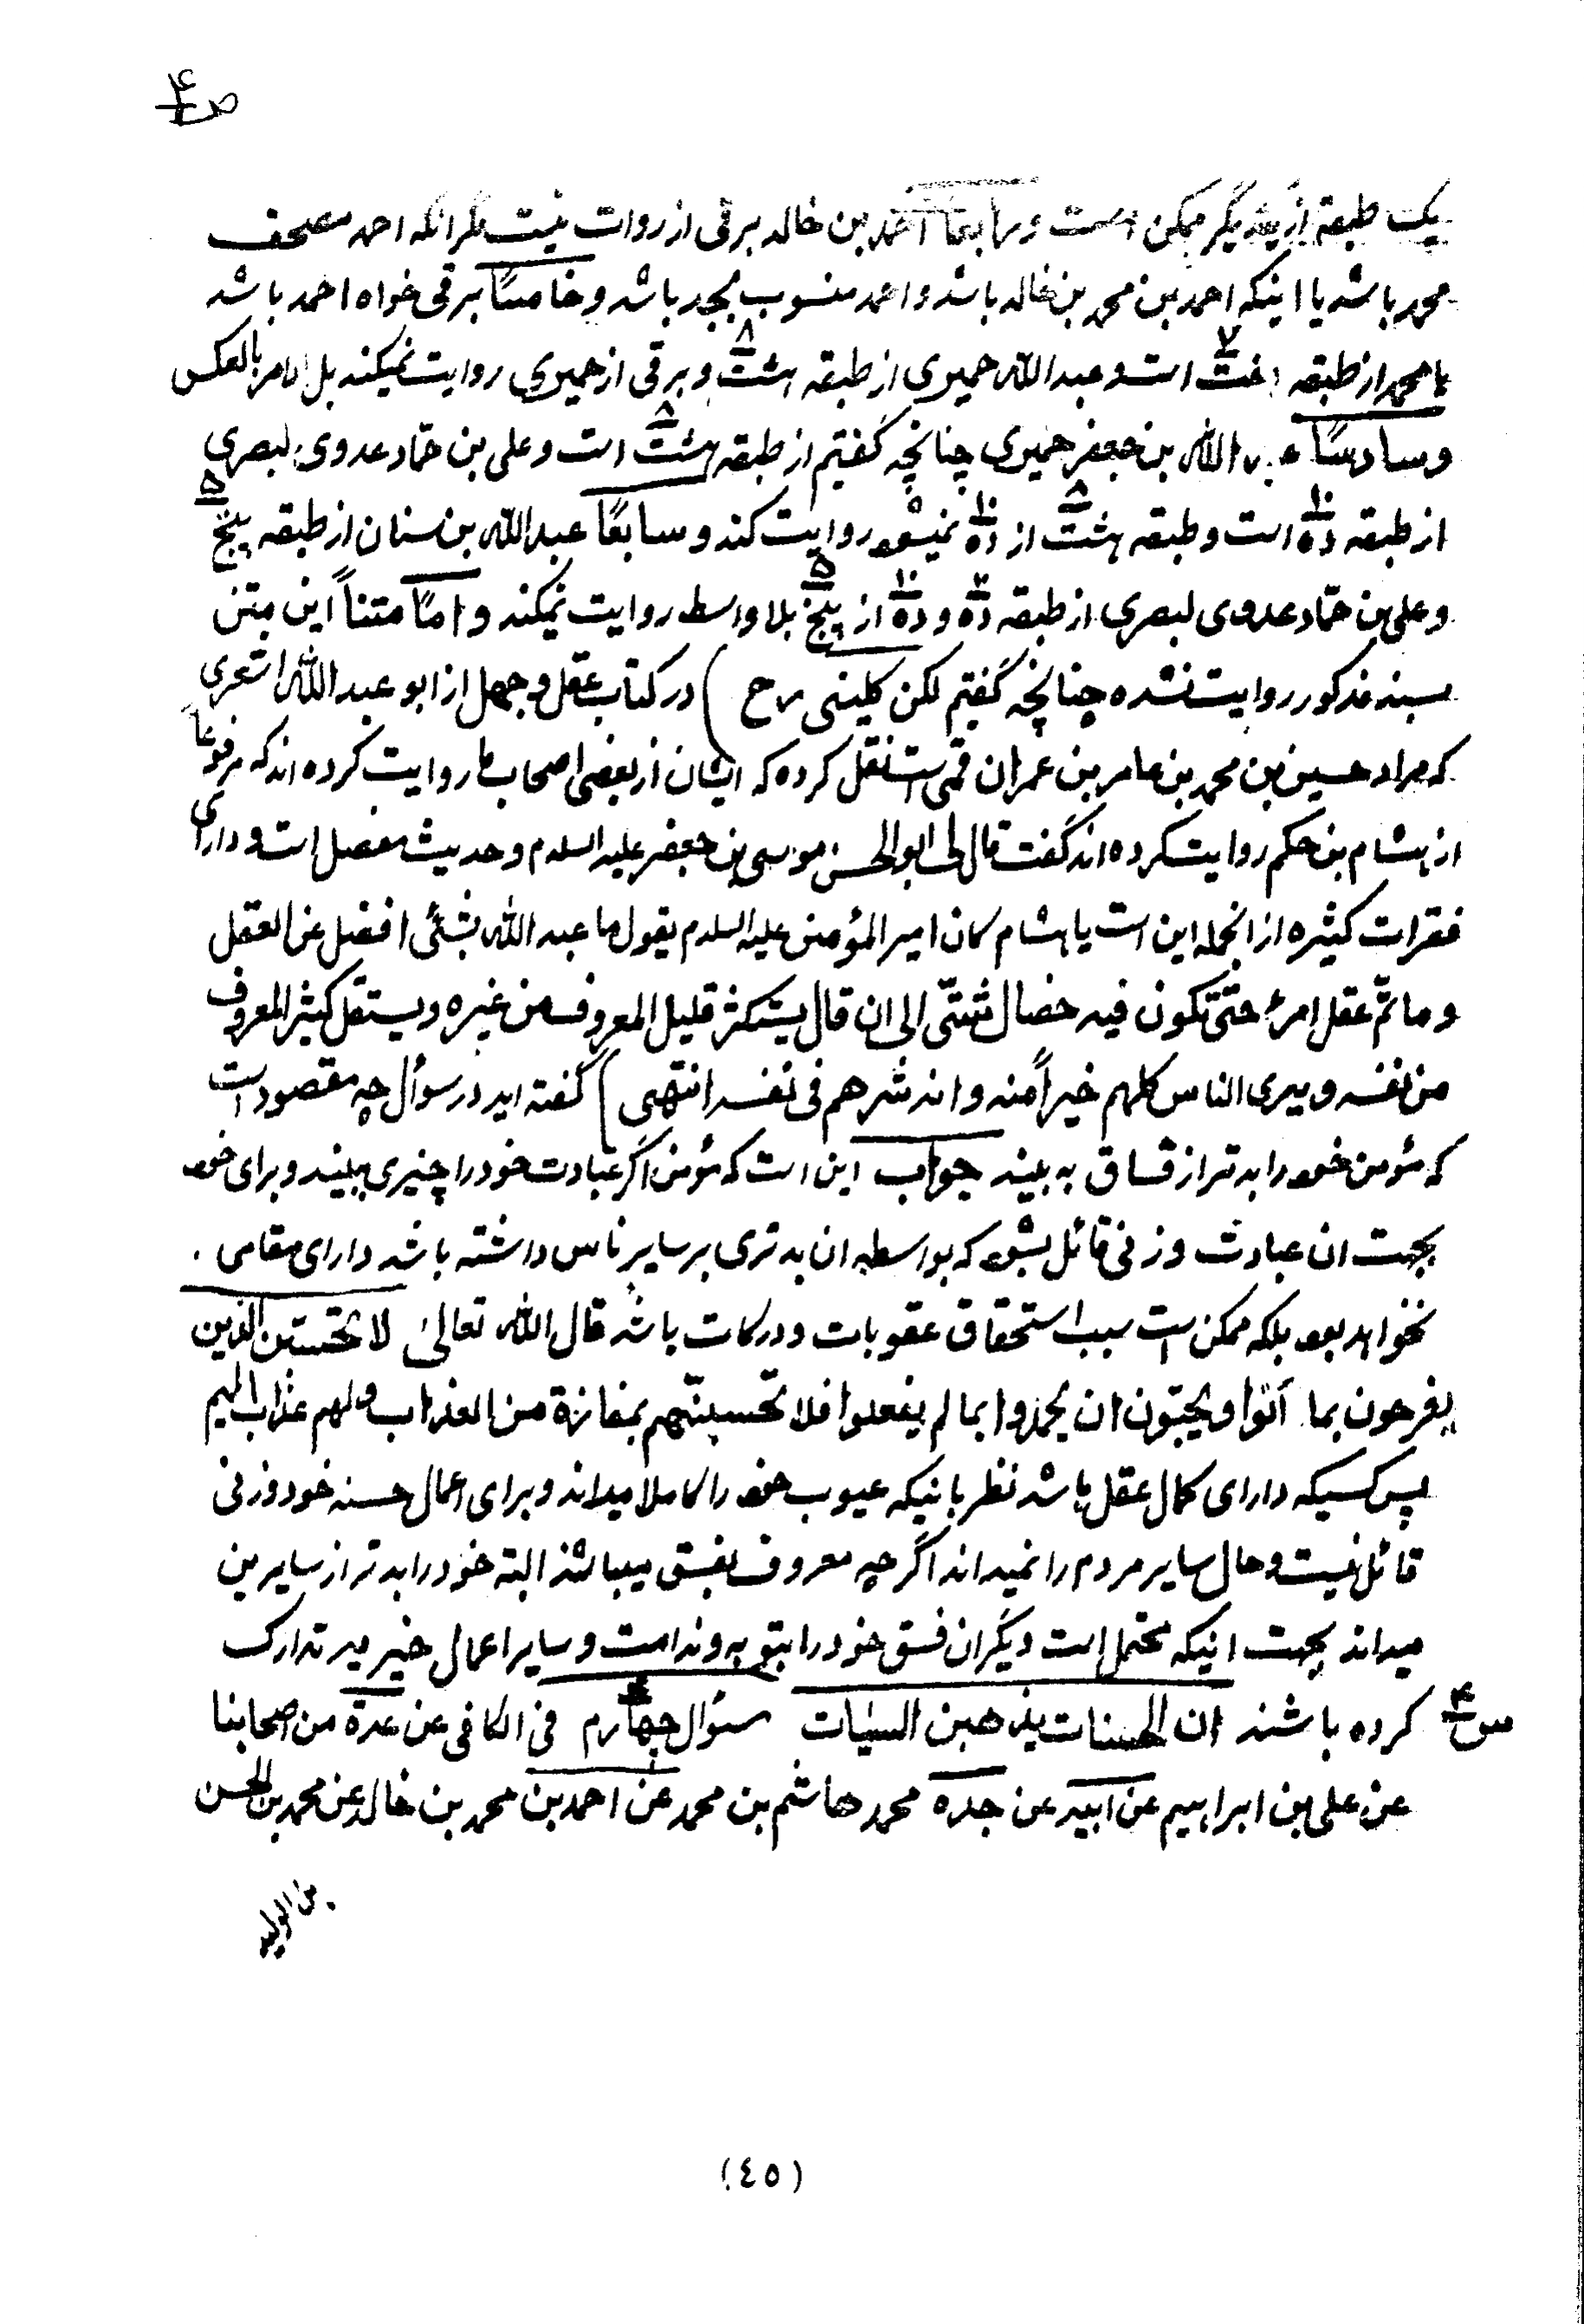 ص ۴
یک طبقه از یکدیگر ممکن است ورابعاً احمد بن خالد برقی از روات نیست مگر انکه احمد مصحف
محمد باشد یا اینکه احمد بن محمد بن خالد باشد و احمد منسوب بجد باشد و خامساً برقی خواه احمد باشد
یا محمد از طبقه هفت ۷ است و عبدالله حمیری از طبقه هشت ۸ و برقی از حمیری روایت نمیکند بل الامر بالعکس
و سادساً عبدالله بن جعفر حمیری چنانچه گفتیم از طبقه هشت ۸ است و علی بن حمّاد عدوی بصری
از طبقه ده ۱۰ است و طبقه هشت ۸ از ده ۱۰ نمیشود روایت کند و سابعًا عبدالله بن سنان از طبقه پنج ۵
و علی بن حمّاد عدوی بصری از طبقه ده ۱۰ و ده ۱۰ از پنج ۵ بلا واسطه روایت نمیکند و امّا متناً این متن
بسند مذکور روایت نشده چنانچه گفتیم لکن کلینی رح ) در کتاب عقل و جهل از ابو عبدالله اشعری
که مراد حسین بن محمد بن عامر بن عمران قمی است نقل کرده که ایشان از بعضی اصحاب ما روایت کرده اند که مرفوعاً
از هشام بن حکم روایت کرده اند گفت قال لی ابوالحسن موسی بن جعفر علیه السلام و حدیث مفصل است و دارای
فقرات کثیره از انجمله این است یا هشام کان امیر المؤمنین علیه السلام یقول ما عبد الله بشئی افضل من العقل
و ما تمّ عقل امرء حتّی تکون فیه خصال شتّی الی ان قال یستکثر قلیل المعروف من غیره و یستقل کثیر المعروف
من نفسه و یری الناس کلهم خیراً منه و انه شرهم فی نفسه انتهی ) گفته اید در سؤال چه مقصود است
که مؤمن خود را بدتر از فساق به بیند جواب این است که مؤمن اگر عبادت خود را چیزی ببیند و برای خود
بجهت ان عبادت وزنی قائل بشود که بواسطه ان بدتری بر سایر ناس داشته باشد دارای مقامی
نخواهد بود بلکه ممکن است سبب استحقاق عقوبات و درکات باشد قال الله تعالیٰ لا تحسبن الذین
یفرحون بما أتوا و یحبّون ان یحمدوا بما لم یفعلوا فلا تحسبنّهم بمفازة من العذاب و لهم عذاب الیم
پس کسیکه دارای کمال عقل باشد نظر باینکه عیوب خود را کاملا میداند و برای اعمال حسنه خود وزنی
قائل نیست و حال سایر مردم را نمیداند اگر چه معروف بفسق میباشند البته خود را بدتر از سایرین
میداند بجهت اینکه محتمل است دیگران فسق خود را بتوبه و ندامت و سایر اعمال خیریه تدارک
س ۴ کرده باشند ان الحسنات یذهبن السیٰات سئوال چهارم ۴ فی الکافی عن عدة من اصحابنا
عن علی بن ابراهیم عن ابیه عن جده محمد هاشم بن محمد عن احمد بن محمد بن خالد عن محمد بن الحسن
بن الولید
(٤٥)